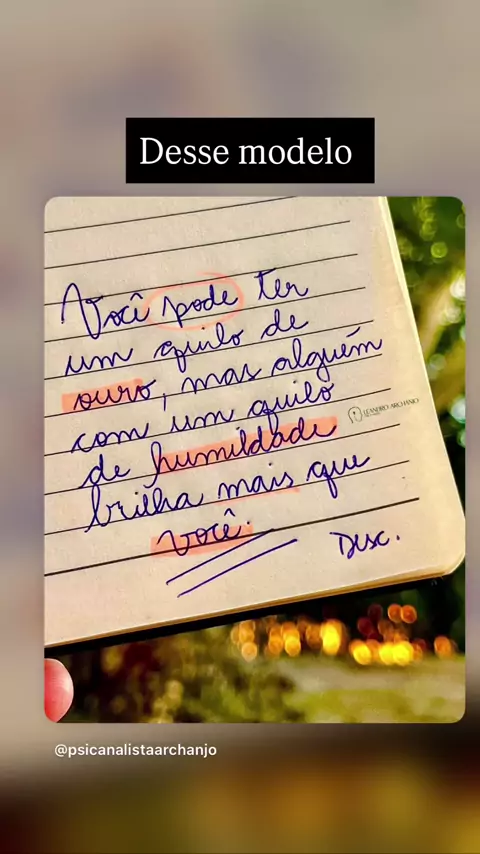 Desse modelo
Você pode ter
um quilo de
ouro, mas alguém
com um quilo
de humildade
brilha mais que
você.
Desc.
LEANDRO ARCHANJO
@psicanalistaarchanjo